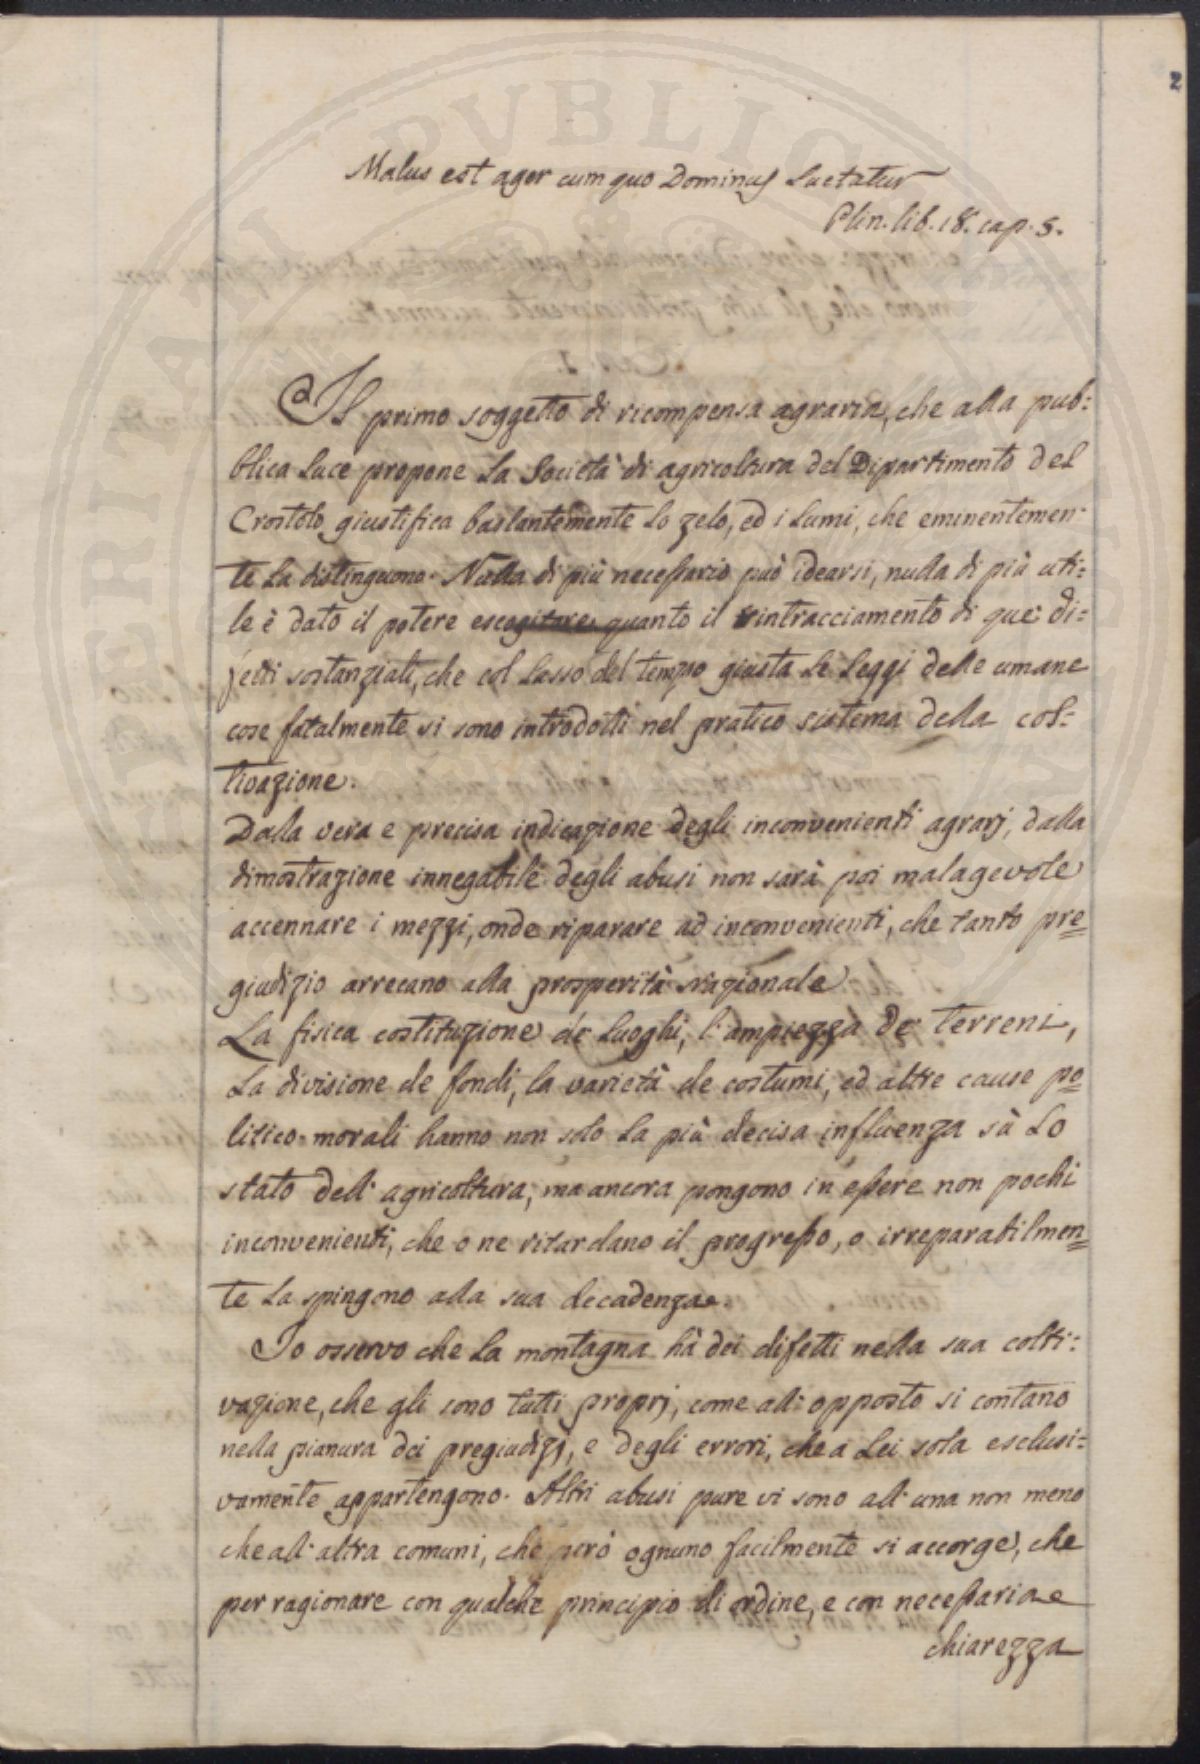 2
Malus est ager cum quo Dominus Luctatur
Plin. lib. 18. cap. 5.
Il primo soggetto di ricompensa agraria, che alla pub:
blica luce propone la Società di agricoltura del Dipartimento del
Crostolo giustifica bastantemente lo zelo, ed i lumi, che eminentemen:
te la distinguono. Nulla di più necessario può idearsi, nulla di più uti:
le è dato il potere escogitare, quanto il rintracciamento di que' di:
fetti sostanziali, che col lasso del tempo giusta le leggi delle umane
cose fatalmente si sono introdotti nel pratico sistema della col:
tivazione.
Dalla vera e precisa indicazione degli inconvenienti agrarj, dalla
dimostrazione innegabile degli abusi non sarà poi malagevole
accennare i mezzi, onde riparare ad inconvenienti, che tanto pre=
giudizio arrecano alla prosperità nazionale.
La fisica costituzione de' luoghi, l'ampiezza de' terreni,
la divisione de fondi, la varietà de costumi, ed altre cause po=
litico-morali hanno non solo la più decisa influenza sù lo
stato dell'agricoltura, ma ancora pongono in essere non pochi
inconvenienti, che o ne ritardano il progresso, o irreparabilmen=
te la spingono alla sua decadenza.
Io osservo che la montagna hà dei difetti nella sua colti:
vazione, che gli sono tutti proprj, come all'opposto si contano
nella pianura dei pregiudizj, e degli errori, che a lei sola esclusi:
vamente appartengono. Altri abusi pure vi sono all'una non meno
che all'altra comuni, che però ognuno facilmente si accorge, che
per ragionare con qualche principio di ordine, e con necessaria
chiarezza